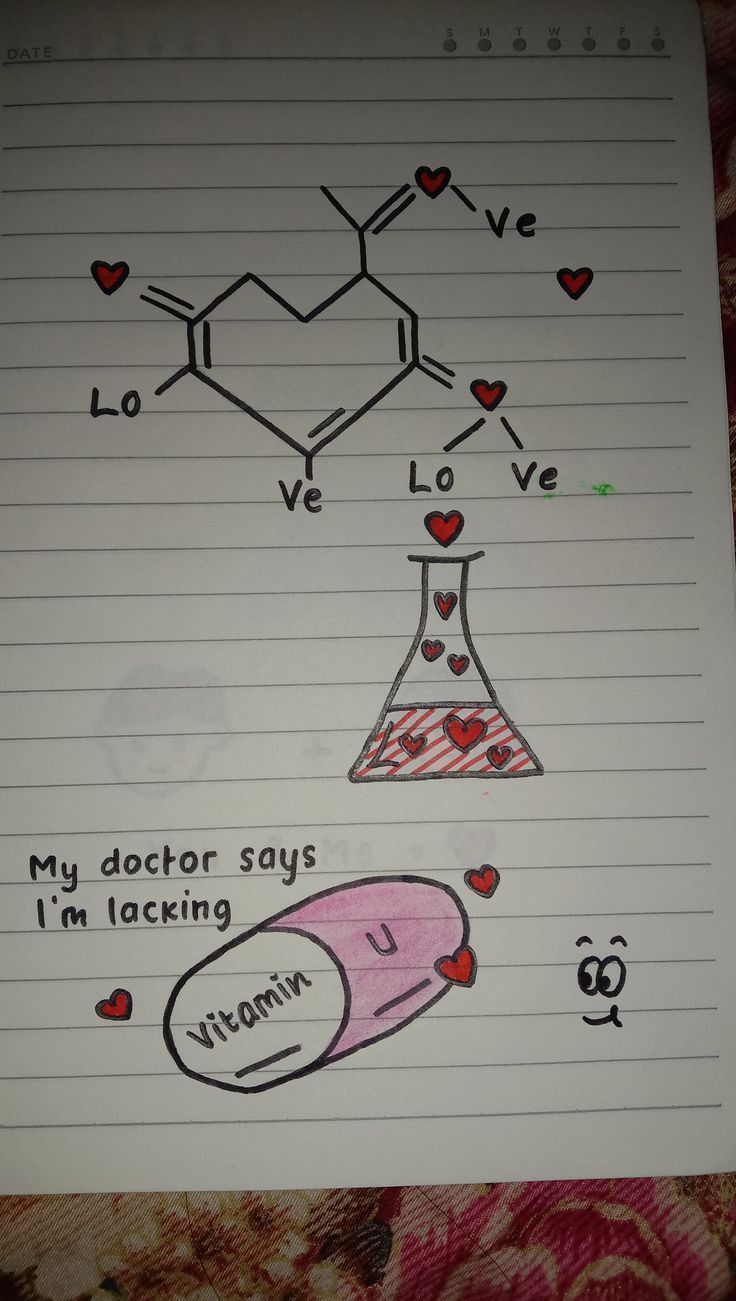 DATE
S M T W T F S
Ve
Lo
Lo Ve
Ve
My doctor says
I'm lacking
vitamin U